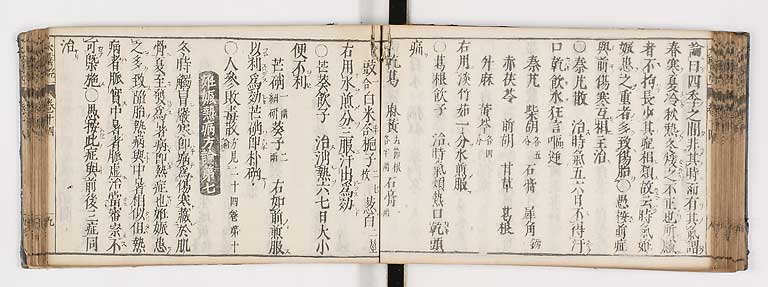 論曰四季之間非其時而有其氣謂
春寒夏冷秋熱冬煖之不正也所感
者不拘長少其病相類故云時氣妊
娠患之重者多致傷胎〇愚按前症
與前傷寒互相主治
〇秦艽散 治時氣五六日不得汗
口乾飲水狂言嘔逆
秦艽 柴胡各五 石膏 犀角鎊
赤茯苓 前胡 甘草 葛根
升麻 黃芩各四
右用淡竹茹一分水煎服
〇葛根飲子 治時氣煩熱口乾頭
痛
乾葛 麻黃去節根 石膏
豉合 白米合 梔子二七枚 葱白二莖
右用水煎分三服汗出爲効
〇芒硝飲子 治熱六七日大小
便不利
芒硝細研一兩 葵子二兩 右如前煎服
以利爲効芒硝即朴硝
〇人參敗毒散方見二十四卷第十論
妊娠熱病方論第七
冬時觸冒嚴寒即病爲傷寒藏於肌
骨夏至發爲暑病即熱症也妊娠患
之多致殞胎熱病與中暑相似但熱
病者脈實中暑者脈虚治當審察不
可槩施〇愚按此症與前後三症同
治